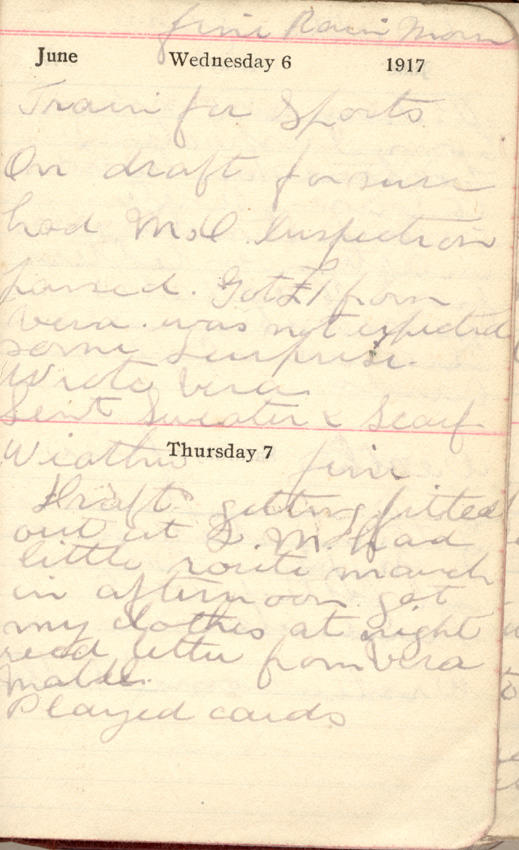 fine Rain Morn
June Wednesday 6 1917
Train for Sports
On draft for sure
had M.O. Inspection
passed. Got £1 from
Vera. was not expected
some surprise.
Wrote Vera
Sent Sweater & Scarf
Thursday 7
Weather fine
Draft getting fitted
out at Q.M. Had
little route march
in afternoon got
my clothes at night
recd letter from Vera
Played cards